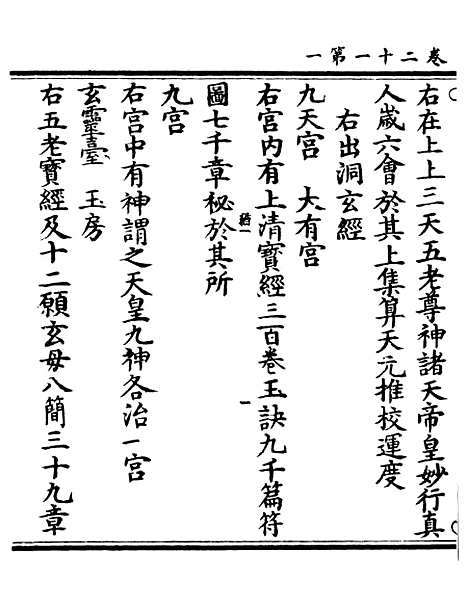 卷二十一第一
右在上上三天五老尊神諸天帝皇妙行真
人歲六會於其上集算天元推校運度
右出洞玄經
九天宫　太有宫
右宫内有上清寳經三百卷玉訣九千篇符
圖七千章秘於其所
九宫
右宫中有神謂之天皇九神各治一宫
玄靈臺　玉房
右五老寳經及十二願玄母八簡三十九章